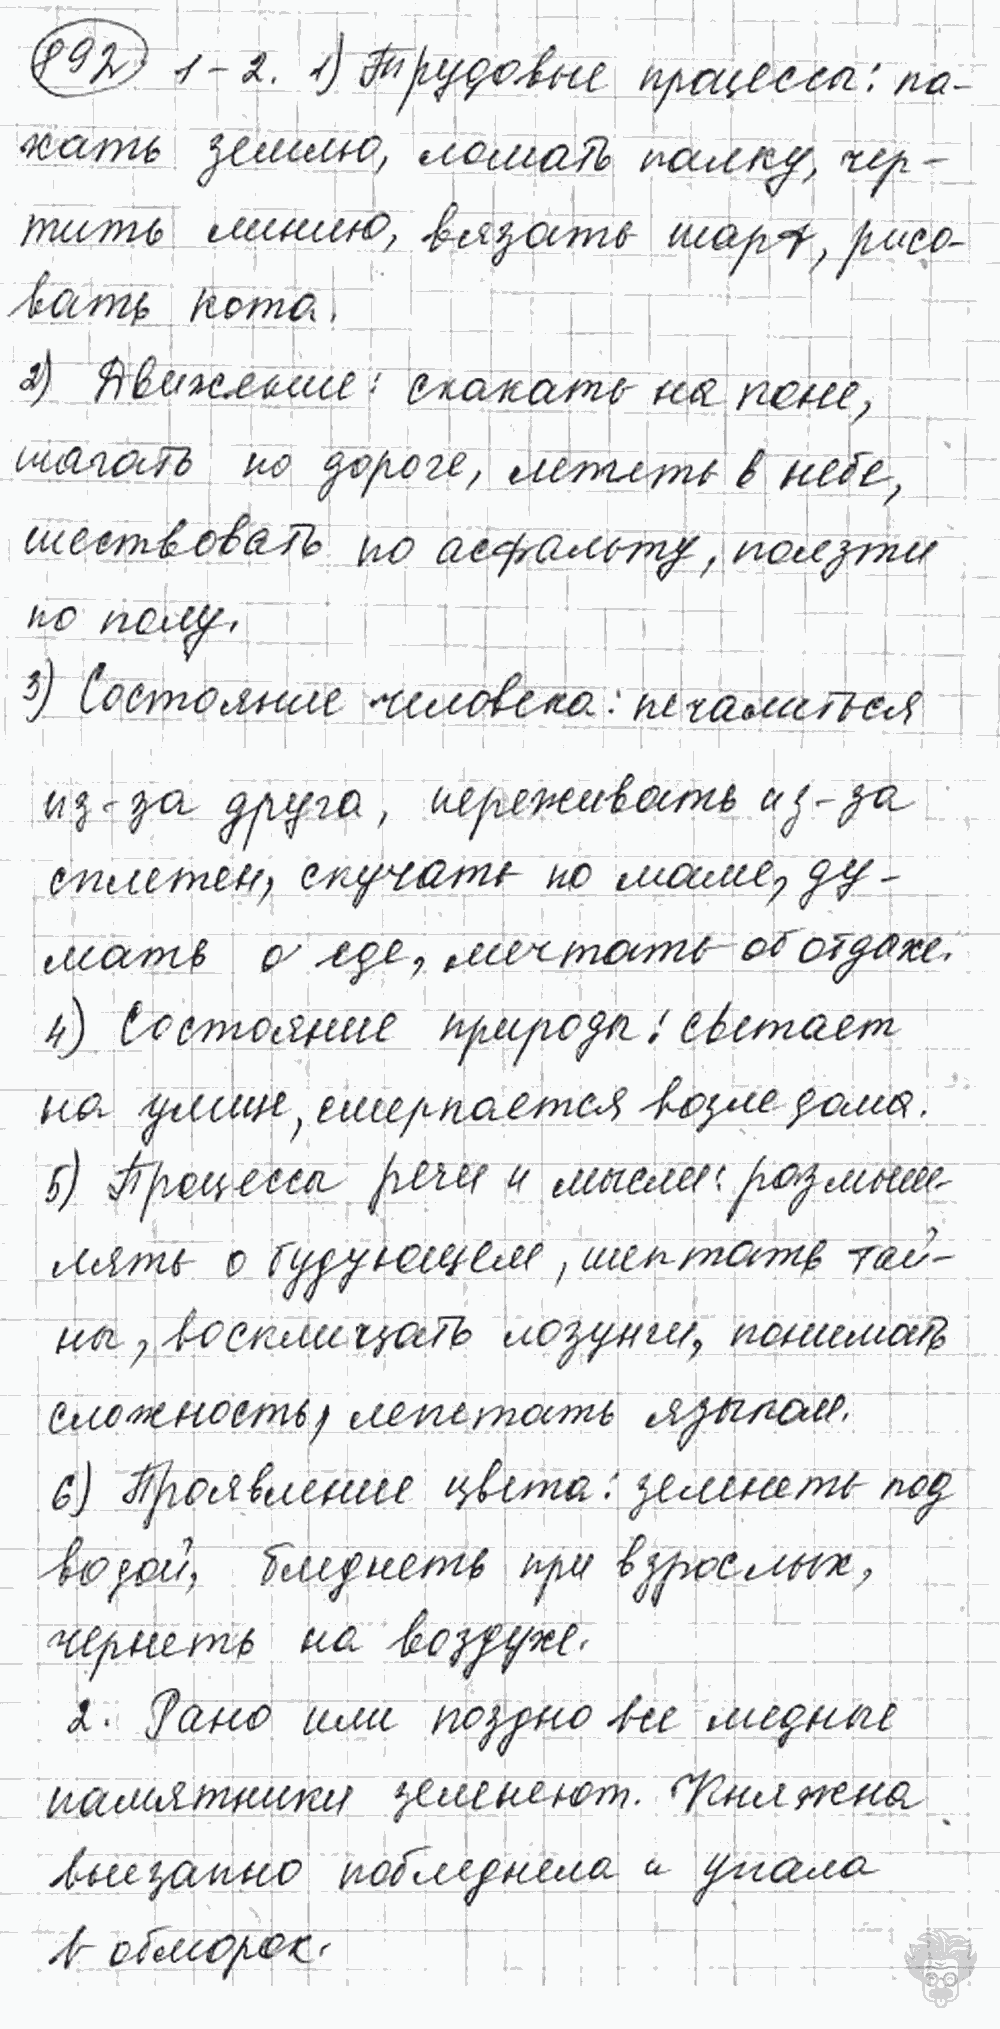 892 1-2. 1) Трудовые процессы: па-
хать землю, ломать палку, чер-
тить линию, вязать шарф, рисо-
вать кота.
2) Движение: скакать на поне,
шагать по дороге, лететь в небе,
шествовать по асфальту, ползти
по полу.
3) Состояние человека: печалиться
из-за друга, переживать из-за
сплетен, скучать по маме, ду-
мать о еде, мечтать об отдыхе.
4) Состояние природы: светает
на улице, смеркается возле дома.
5) Процессы речи и мысли: размыш-
лять о будующем, шептать тай-
ны, восклицать лозунги, понимать
сложность, лепетать языком.
6) Проявление цвета: зеленеть под
водой, бледнеть при взрослых,
чернеть на воздухе.
2. Рано или поздно все медные
памятники зеленеют. Княжна
внезапно побледнела и упала
в обморок.